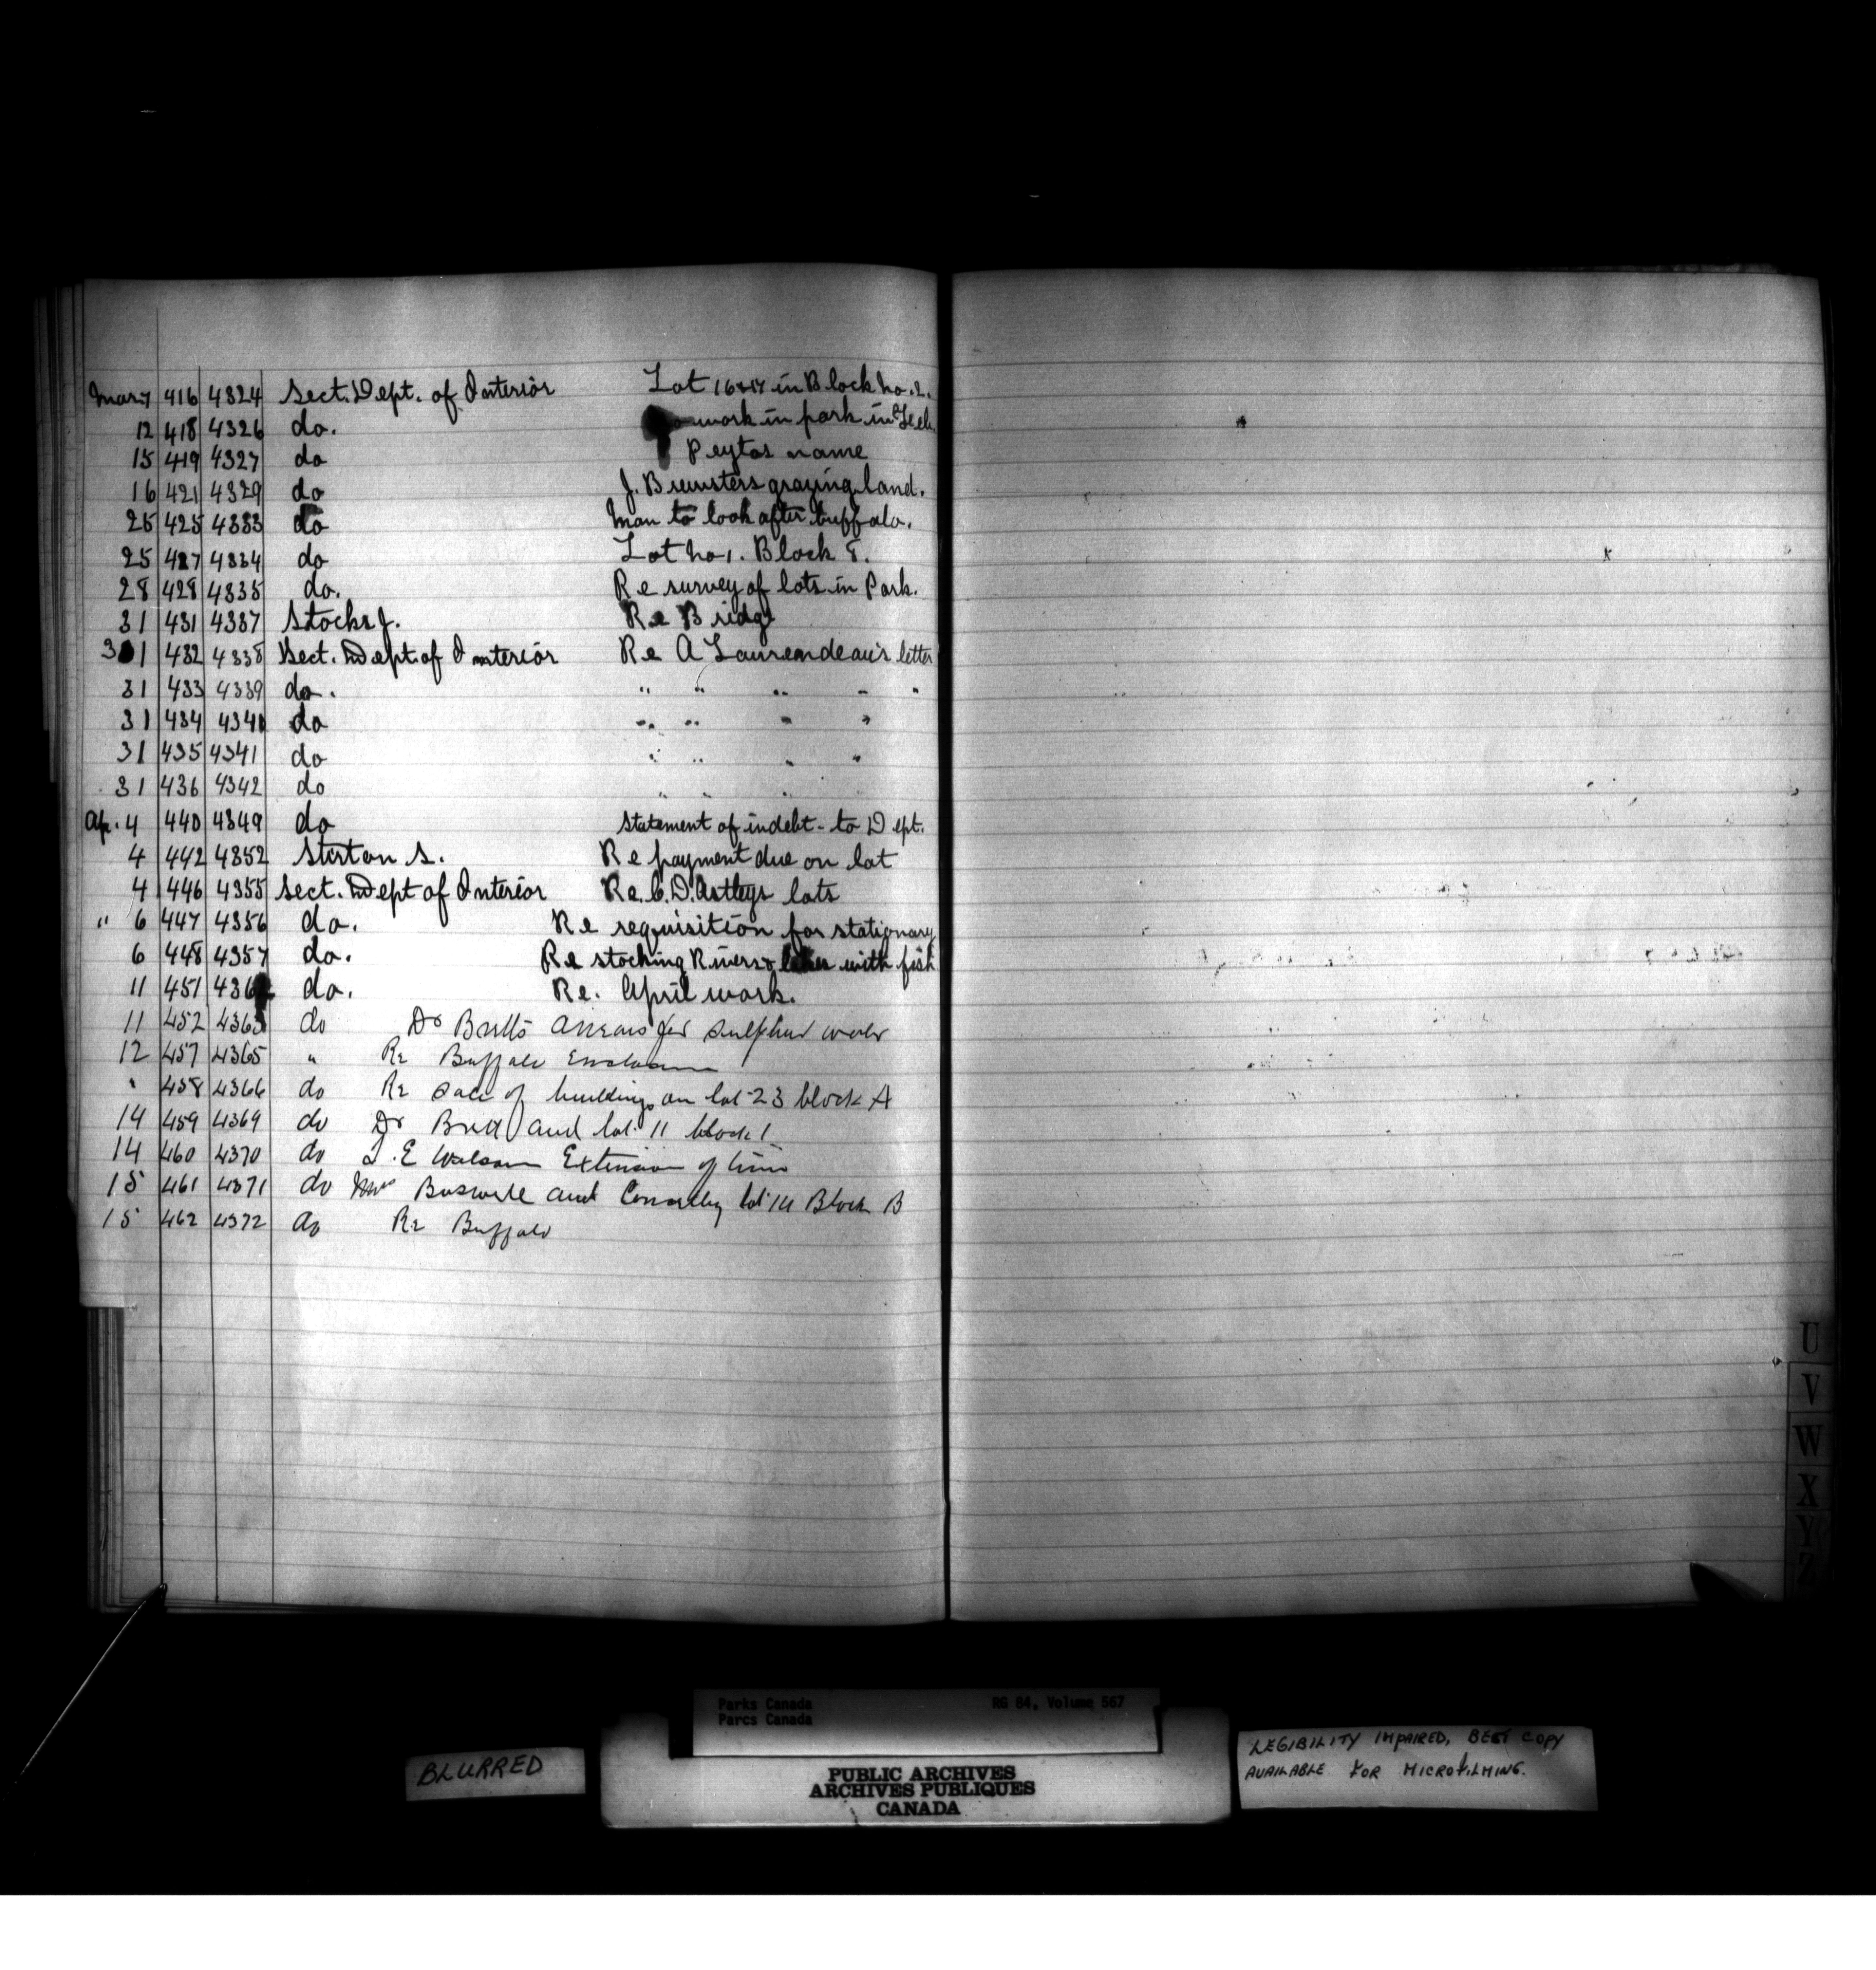 Mar 7 416 4324 Sect. Dept. of Interior Lot 16&17 in Block no. 2.
12 418 4326 do. work in park in Feb.
15 419 4327 do Peytos name
16 421 4329 do J. Brewsters grazing land.
25 425 4333 do Man to look after buffalo.
25 427 4334 do Lot no 1. Block 8.
28 428 4335 do. Re survey of lots in Park.
31 431 4337 Stocks J. Re Bridge
31 432 4338 Sect. Dept. of Interior Re A Laurendeau's letter
31 433 4339 do. " " " " "
31 434 4340 do " " " "
31 435 4341 do " " " "
31 436 4342 do " " " "
Ap. 4 440 4349 do Statement of indebt- to Dept.
4 442 4352 Stirton S. Re payment due on lot
4 446 4355 Sect. Dept of Interior Re. C. D. Astleys lots
" 6 447 4356 do. Re requisition for stationary
6 448 4357 do. Re stocking Rivers & lakes with fish
11 451 436 do. Re. April work.
11 452 4363 do Dr Bretts arrears for sulphur water
12 457 4365 " Re Buffalo Enclosure
" 458 4366 do Re sale of buildings on lot 23 block A
14 459 4369 do Dr Brett and lot 11 block 1
14 460 4370 do E Wilson Extension of time
15 461 4371 do Boswell and lot 14 Block B
15 462 4372 do Re Buffalo
U
V
W
X
Y
Z
Parks Canada RG 84, Volume 567
Parcs Canada
BLURRED
PUBLIC ARCHIVES
ARCHIVES PUBLIQUES
CANADA
LEGIBILITY IMPAIRED, BEST COPY
AVAILABLE FOR MICROFILMING.